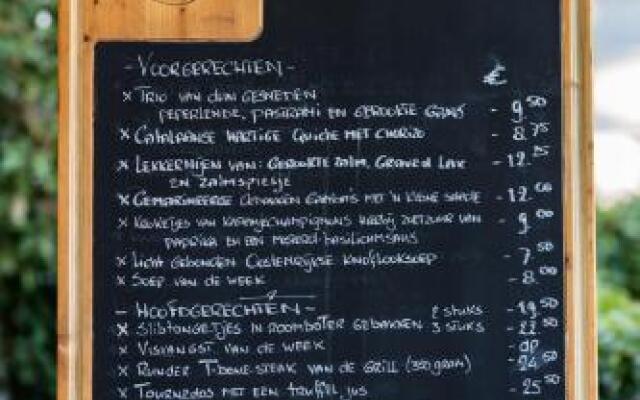 - VOORGERECHTEN - €
x TRIO VAN DUN GESNEDEN
PEPERLENDE, PASTRAMI EN GEROOKTE GANS - 9.50
x CATALAANSE HARTIGE QUICHE MET CHORIZO - 8.75
x LEKKERNIJEN VAN: GEROOKTE ZALM, GRAVED LAX - 12.25
EN ZALMSPIESJE
x GEMARINEERDE GEBAKKEN GAMBA'S MET 'N KLEINE - 12.00
x VAN KASTANJECHAMPIGNONS ZOETZUUR VAN - 9.00
PAPRIKA EN EEN BASILICUMSAUS
x LICHT GEBONDEN OOSTENRIJKSE KNOFLOOKSOEP - 7.50
x SOEP VAN DE WEEK - 8.00
- HOOFDGERECHTEN - 2 STUKS - 19.50
x SLIBTONGETJES IN ROOMBOTER GEBAKKEN 3 STUKS - 22.50
x VISVANGST VAN DE WEEK - DP
x RUNDER T-BONE-STEAK VAN DE GRILL (350 GRAM) - 24.50
x TOURNEDOS MET EEN TRUFFEL JUS - 25.50